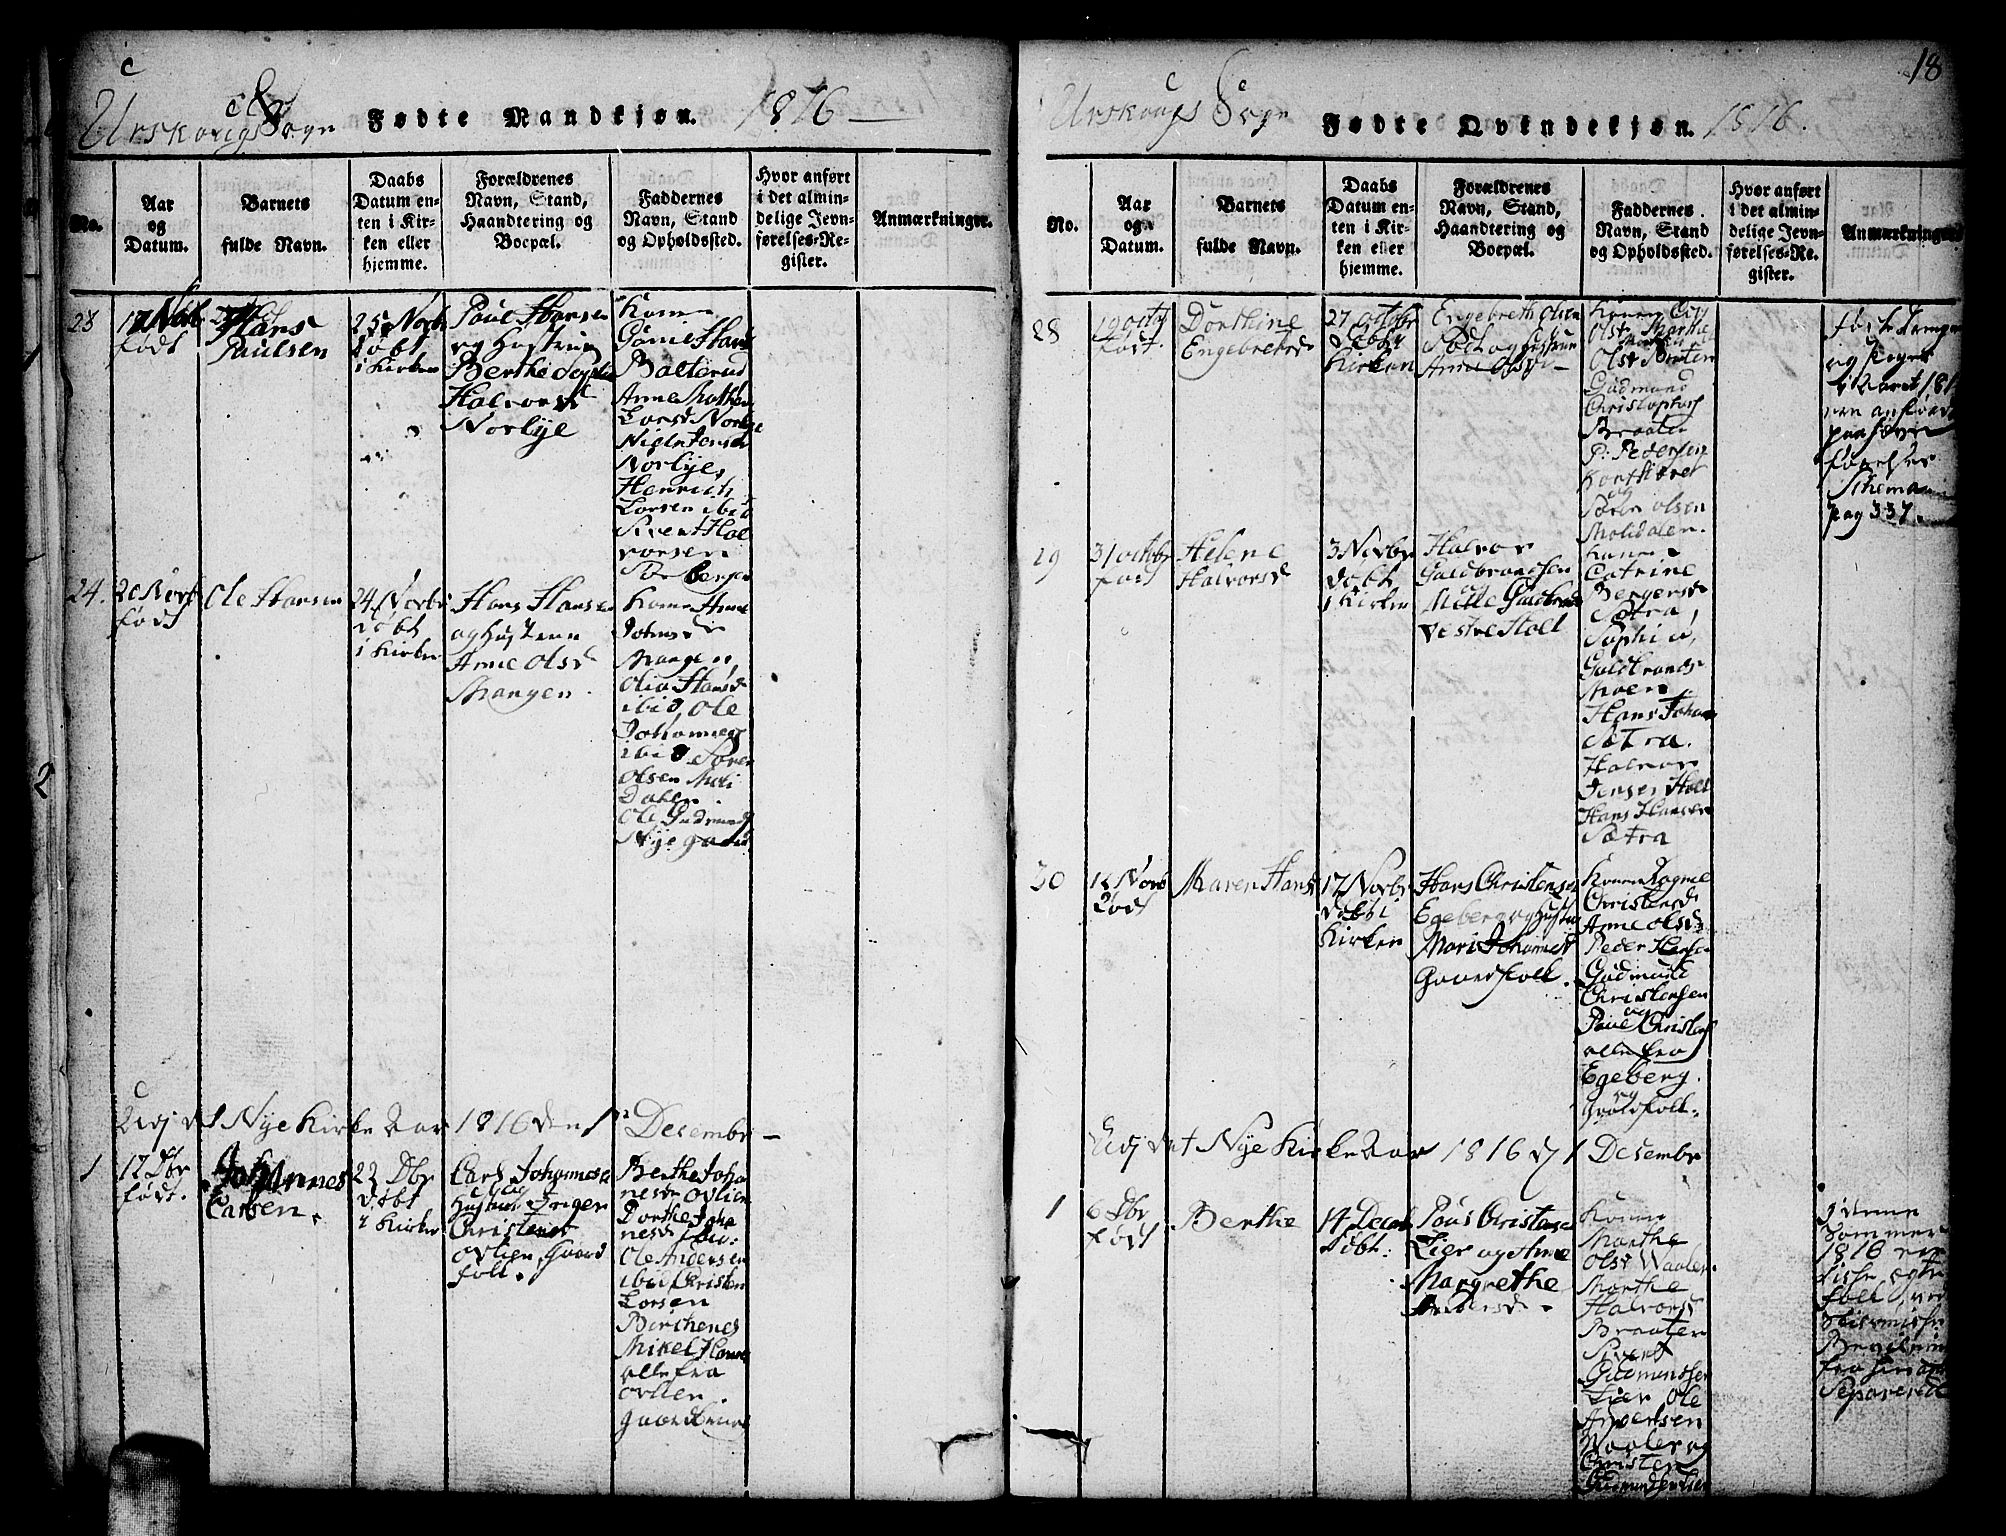 Urskougs Sogn Fødte Mandkjøn. 1816
No.
Aar
og
Datum.
Barnets
fulde Navn.
Daabs
Datum en-
ten i Kir-
ken eller
hjemme.
Forældrenes
Navn, Stand,
Haandtering og
Boepæl.
Faddernes
Navn, Stand
og Opholdssted.
Hvor anført
i det almin-
delige Jevn-
førelses-Re-
gister.
Anmærkninger.
23
født
Hans
Paulsen
25 Novbr
døbt
i Kirken
Poul Hansen
og Hustrue
Berthe
Halvorsd
Norbye
Kone
Balterud
Anne
Larsd Norbye
Niels Jensen
Norbye,
Henrich
Larsen ibid
Sivert Hal
vorsen
24.
20 Novb
født
Ole Hansen
24 Novbr
døbt
i Kirken
Hans Hansen
og Hustrue
Anne Olsd
Mangen.
Kone Anne
Johansd
Mangen,
Olia Hansd
ibid, Ole
Johannes
ibid Søren
Olsen Moli
Dalen
Ole Gudmunds
Nyegaard
Udj det Nye Kirke Aar 1816 den 1 Decembr
1
17 Dbr
født.
Johannes
Carlsen.
22 Dbr
døbt
i Kirken
Carl Johannesen
og
Hustrue Inger
Christensd
Ovlien, Gaard
folk.
Berthe Joha
nesd Ovlien
Dorthe Joha
nesd ibid:
Ole Andersen
ibid Christen
Larsen
Birchenes
Mikel Hansen
alle fra
Ovlien
18
Urskougs Sogn Fødte Qvindekjøn. 1816.
No.
Aar
og
Datum.
Barnets
fulde Navn.
Daabs
Datum en-
ten i Kir-
ken eller
hjemme.
Forældrenes
Navn, Stand,
Haandtering og
Boepæl.
Faddernes
Navn, Stand
og Opholdssted.
Hvor anført
i det almin-
delige Jevn-
førelses-Re-
gister.
Anmærkninger.
28
19 octb
født.
Dorthine
Engebretsd
27 octobr
døbt
Kirken
Engebreth Olsen
og Hustrue
Anne Olsd
Olsd Marthe
Olsd Braten
Gudmund
Christophers
Braaten
P: Pedersen
og
Søren Olsen
Molidalen.
og Piger
i Aaret 181
ere anførte
paa Jævn
førelses
Schema
pag 337.
29
31 octobr
født
Helene
Halvorsd
3 Novbr
døbt
i Kirken
Halvor
Guldbrandsen
og
Mille Guldbrands
Vestre Holt
Kone
Catrine
Bergersd
Sætra,
Sophia
Guldbrands
Moen,
Hans Johan
Sætra.
Halvor
Jensen Holt
Hans Hansen
Sætra
30
Novb
født
Maren Hansd
17 Novbr
døbt i
Kirken
Hans Christensen
Egeberg og Hustrue
Mari Johannesd
Gaardfolk.
Kone Ragnil
Christensd
Anne Olsd:
Peder Hanse
Gudmund
Christensen
og
Poul Christens
alle fra
Egeberg.
og
Gaardfolk.
Udj det Nye Kirke Aar 1816 d 1 Decembr
1
6 Dbr
født
Berthe
14 Decmb
døbt:
Poul Christensen
Lier og Anne
Margrethe
Andersd
Kone
Marthe
Olsd Waaler
Marthe
Halvorsd
Braaten
Sivert
Gudmundsen
Lier Ole
Andersen
Waaler og
Christen
Gudmundsen Lier
I denne
Sommer
1816 ere
disse egte
folk, ved
Bevilning
fra hinanden
Separered